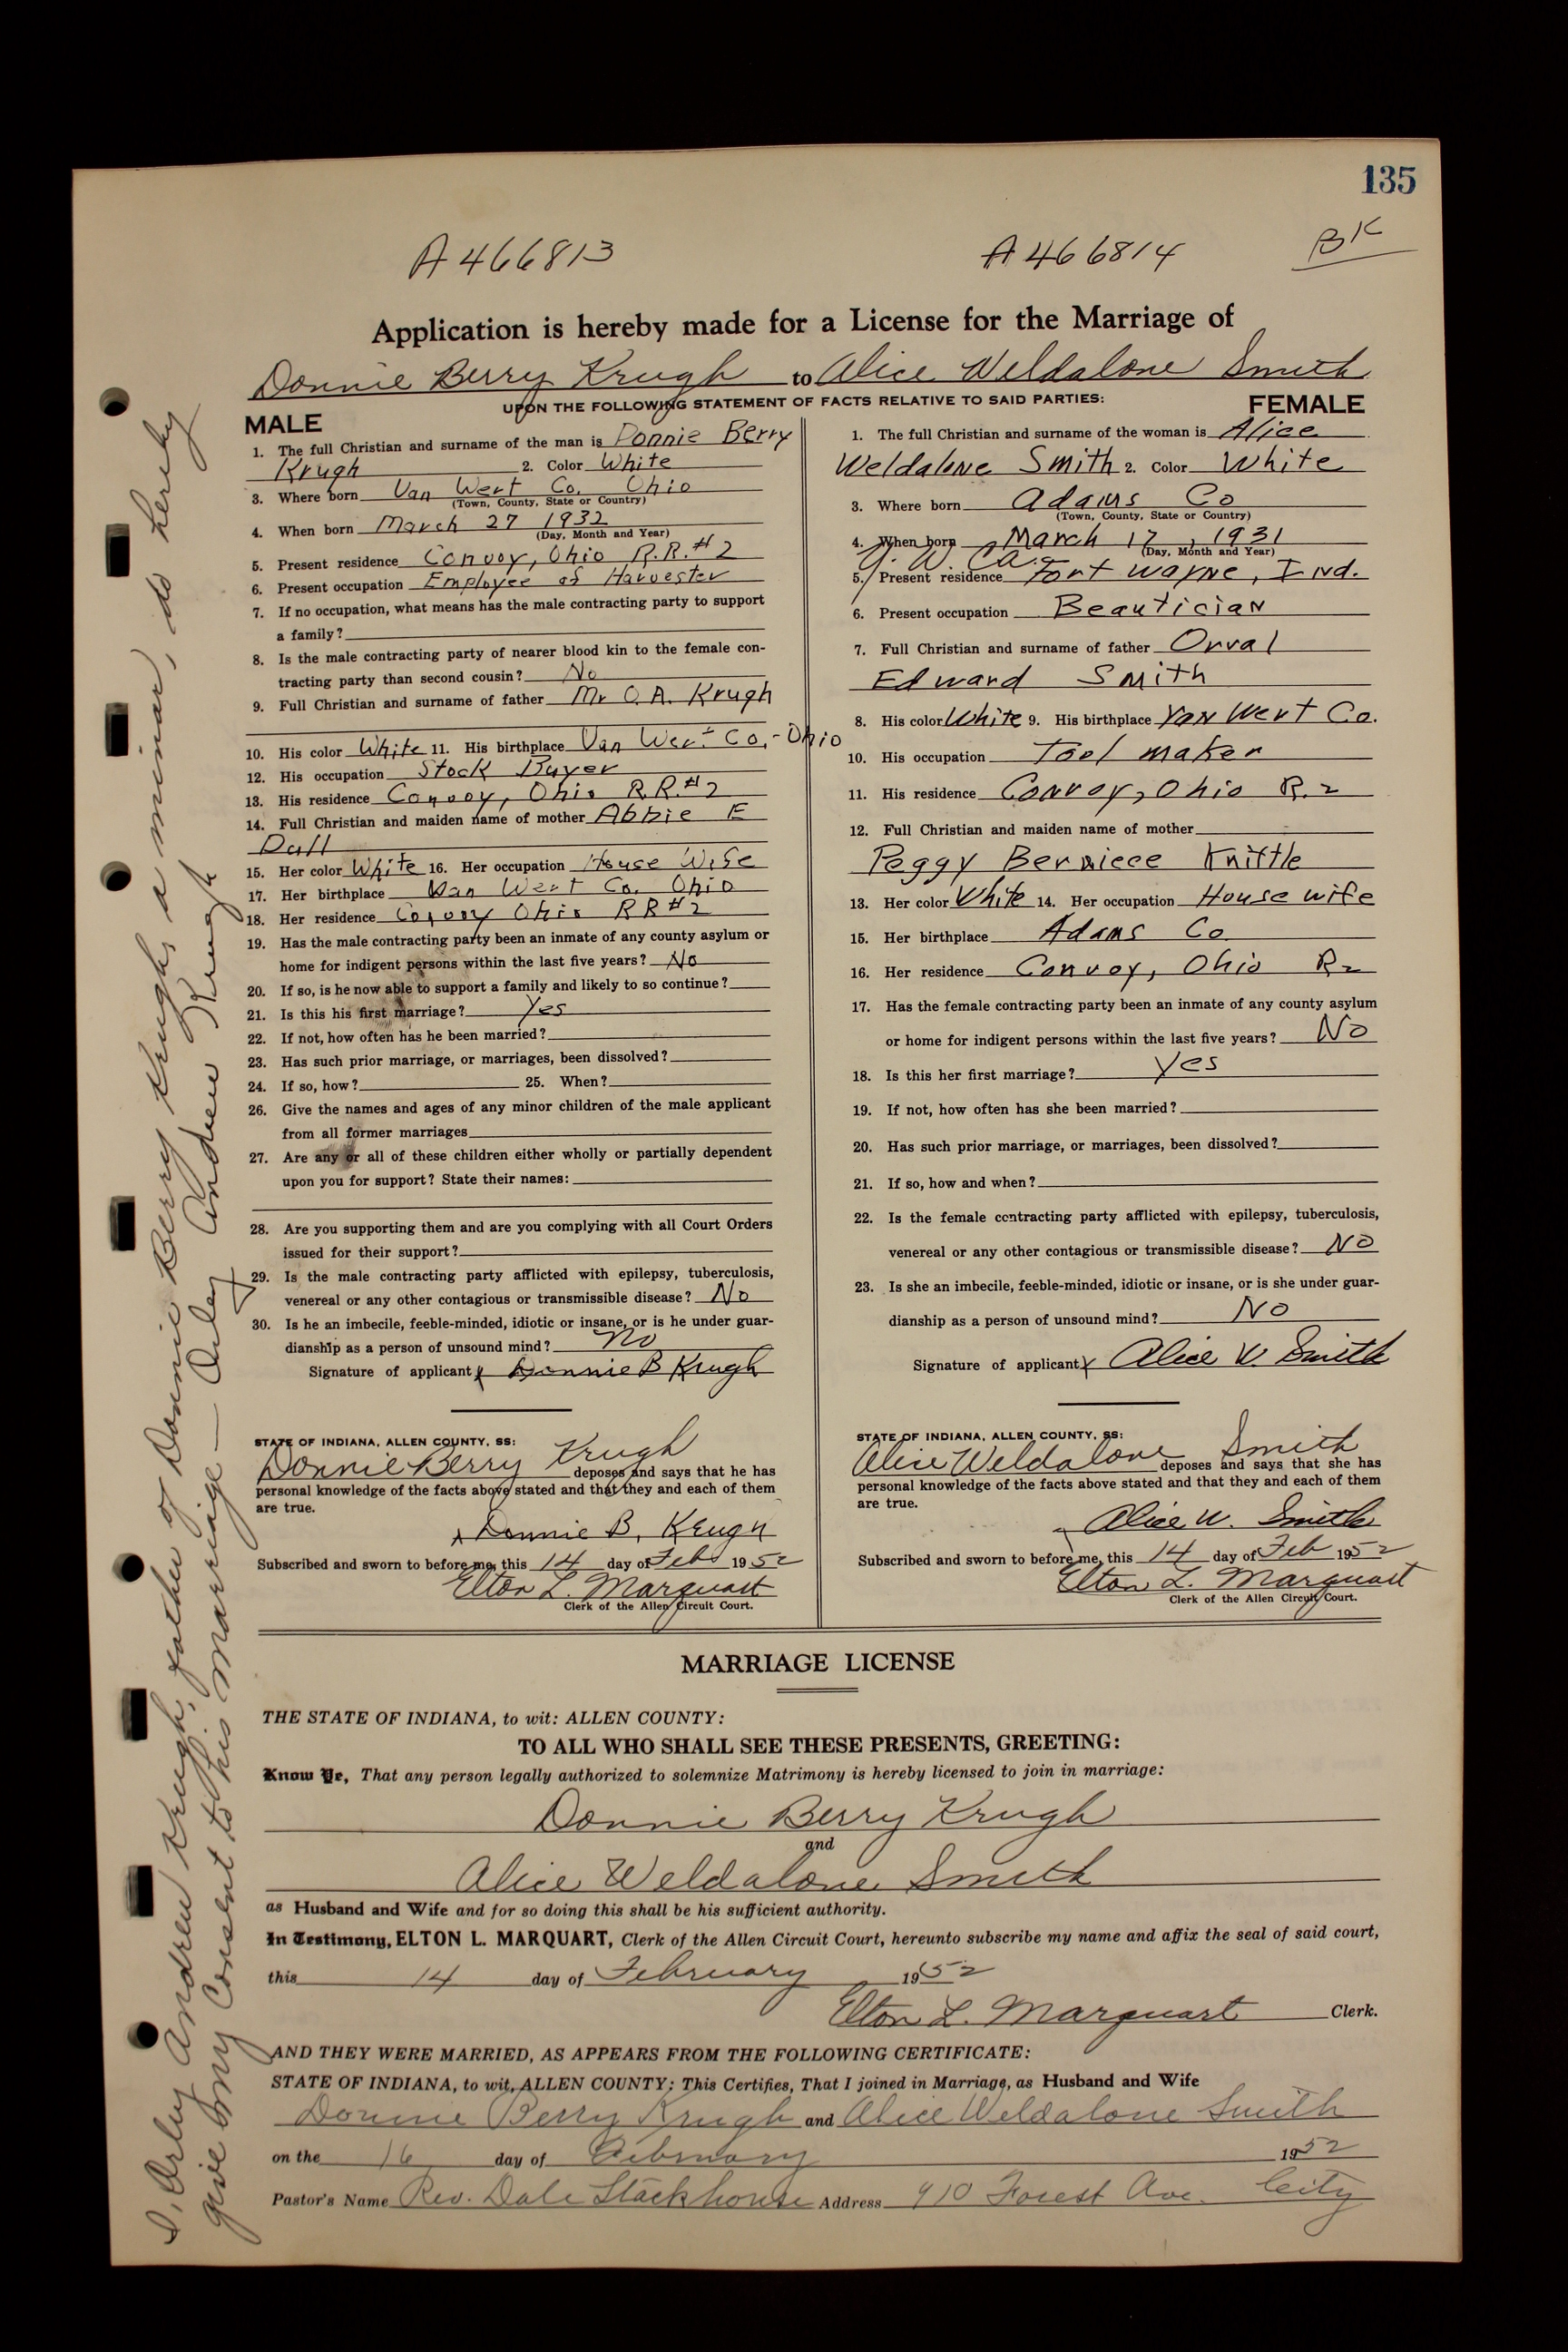 135
A466813 A466814 BK
Application is hereby made for a License for the Marriage of
Donnie Berry Krugh to Alice Weldalone Smith
UPON THE FOLLOWING STATEMENT OF FACTS RELATIVE TO SAID PARTIES:
MALE
1. The full Christian and surname of the man is Donnie Berry
Krugh 2. Color White
3. Where born Van Wert Co. Ohio
(Town, County, State or Country)
4. When born March 27 1932
(Day, Month and Year)
5. Present residence Convoy, Ohio R.R.#2
6. Present occupation Employee of Harvester
7. If no occupation, what means has the male contracting party to support
a family?
8. Is the male contracting party of nearer blood kin to the female con-
tracting party than second cousin? No
9. Full Christian and surname of father Mr O.A. Krugh
10. His color White 11. His birthplace Van Wert Co,-Ohio
12. His occupation Stock Buyer
13. His residence Convoy, Ohio R.R.#2
14. Full Christian and maiden name of mother Abbie E
Dull
15. Her color White 16. Her occupation House Wife
17. Her birthplace Van Wert Co. Ohio
18. Her residence Convoy Ohio RR#2
19. Has the male contracting party been an inmate of any county asylum or
home for indigent persons within the last five years? No
20. If so, is he now able to support a family and likely to so continue?
21. Is this his first marriage? Yes
22. If not, how often has he been married?
23. Has such prior marriage, or marriages, been dissolved?
24. If so, how? 25. When?
26. Give the names and ages of any minor children of the male applicant
from all former marriages
27. Are any or all of these children either wholly or partially dependent
upon you for support? State their names:
28. Are you supporting them and are you complying with all Court Orders
issued for their support?
29. Is the male contracting party afflicted with epilepsy, tuberculosis,
venereal or any other contagious or transmissible disease? No
30. Is he an imbecile, feeble-minded, idiotic or insane, or is he under guar-
dianship as a person of unsound mind? no
Signature of applicant x Donnie B Krugh
STATE OF INDIANA, ALLEN COUNTY, SS:
Donnie Berry Krugh deposes and says that he has
personal knowledge of the facts above stated and that they and each of them
are true.
x Donnie B. Krugh
Subscribed and sworn to before me, this 14 day of Feb 1952
Elton L. Marquart
Clerk of the Allen Circuit Court.
FEMALE
1. The full Christian and surname of the woman is Alice
Weldalone Smith 2. Color White
3. Where born Adams Co
(Town, County, State or Country)
4. When born March 17, 1931
(Day, Month and Year)
Y. W. Ca.
5. Present residence Fort Wayne, Ind.
6. Present occupation Beautician
7. Full Christian and surname of father Orval
Edward Smith
8. His color White 9. His birthplace Van Wert Co.
10. His occupation Tool maker
11. His residence Convoy, Ohio R. 2
12. Full Christian and maiden name of mother
Peggy Berniece Knittle
13. Her color White 14. Her occupation House wife
15. Her birthplace Adams Co
16. Her residence Convoy, Ohio R2
17. Has the female contracting party been an inmate of any county asylum
or home for indigent persons within the last five years? No
18. Is this her first marriage? Yes
19. If not, how often has she been married?
20. Has such prior marriage, or marriages, been dissolved?
21. If so, how and when?
22. Is the female contracting party afflicted with epilepsy, tuberculosis,
venereal or any other contagious or transmissible disease? No
23. Is she an imbecile, feeble-minded, idiotic or insane, or is she under guar-
dianship as a person of unsound mind? No
Signature of applicant x Alice W. Smith
STATE OF INDIANA, ALLEN COUNTY, SS:
Alice Weldalone Smith deposes and says that she has
personal knowledge of the facts above stated and that they and each of them
are true.
x Alice W. Smith
Subscribed and sworn to before me, this 14 day of Feb 1952
Elton L. Marquart
Clerk of the Allen Circuit Court.
MARRIAGE LICENSE
THE STATE OF INDIANA, to wit: ALLEN COUNTY:
TO ALL WHO SHALL SEE THESE PRESENTS, GREETING:
Know Ye, That any person legally authorized to solemnize Matrimony is hereby licensed to join in marriage:
Donnie Berry Krugh
and
Alice Weldalone Smith
as Husband and Wife and for so doing this shall be his sufficient authority.
In Testimony, ELTON L. MARQUART, Clerk of the Allen Circuit Court, hereunto subscribe my name and affix the seal of said court,
this 14 day of February 1952
Elton L. Marquart Clerk.
AND THEY WERE MARRIED, AS APPEARS FROM THE FOLLOWING CERTIFICATE:
STATE OF INDIANA, to wit, ALLEN COUNTY: This Certifies, That I joined in Marriage, as Husband and Wife
Donnie Berry Krugh and Alice Weldalone Smith
on the 16 day of February 1952
Pastor's Name Rev. Dale Stackhouse Address 910 Forest Ave. City
I, Orley Andrew Krugh, father of Donnie Berry Krugh, a minor, do hereby
give my Consent to this marriage — Orley Andrew Krugh